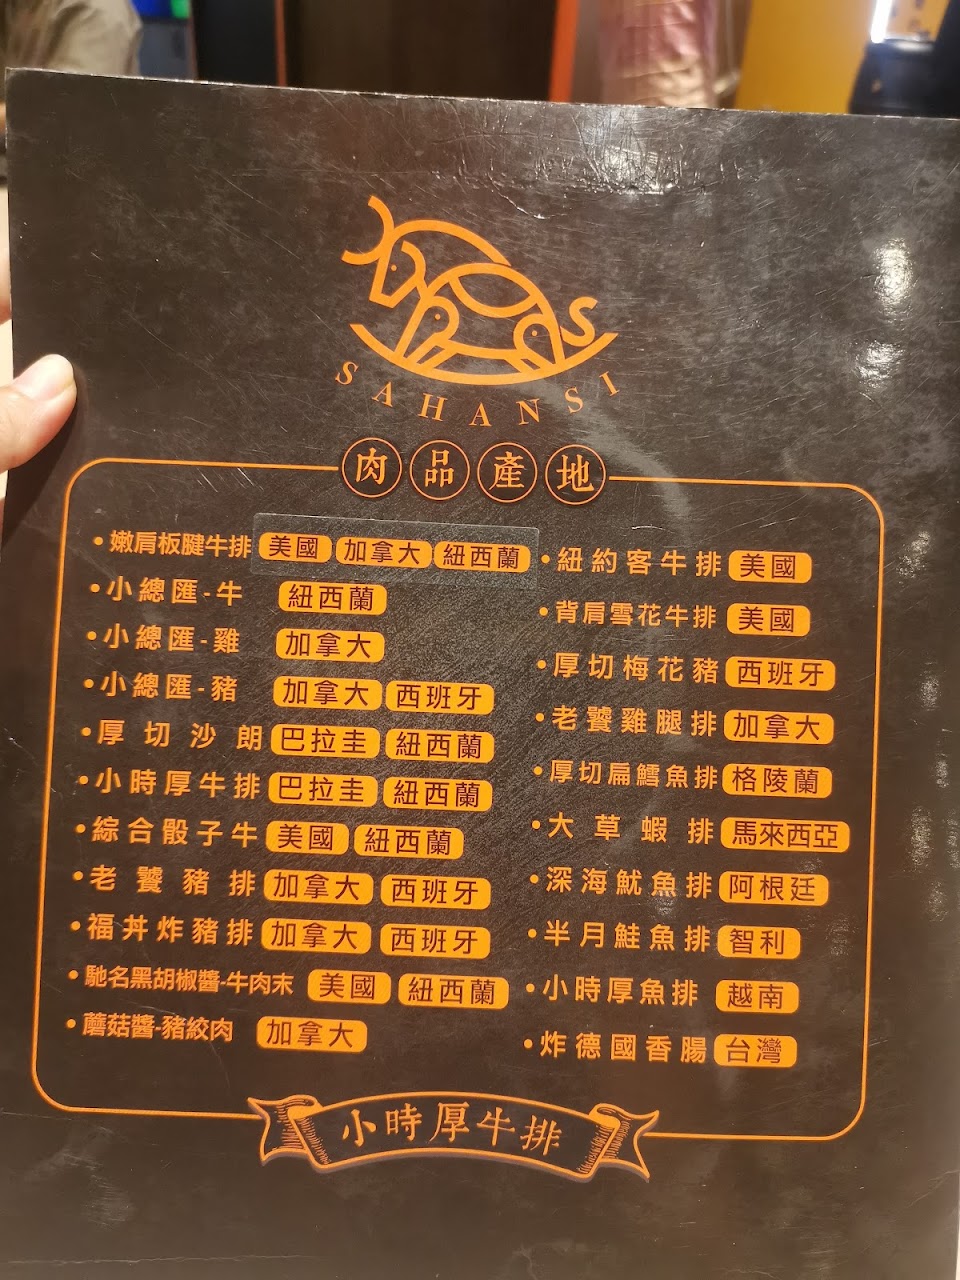 SAHANSI
肉品產地
• 嫩肩板腱牛排 美國 加拿大 紐西蘭
• 小總匯-牛 紐西蘭
• 小總匯-雞 加拿大
• 小總匯-豬 加拿大 西班牙
• 厚切沙朗 巴拉圭 紐西蘭
• 小時厚牛排 巴拉圭 紐西蘭
• 綜合骰子牛 美國 紐西蘭
• 老饕豬排 加拿大 西班牙
• 福丼炸豬排 加拿大 西班牙
• 馳名黑胡椒醬-牛肉末 美國 紐西蘭
• 蘑菇醬-豬絞肉 加拿大
• 紐約客牛排 美國
• 背肩雪花牛排 美國
• 厚切梅花豬 西班牙
• 老饕雞腿排 加拿大
• 厚切扁鱈魚排 格陵蘭
• 大草蝦排 馬來西亞
• 深海魷魚排 阿根廷
• 半月鮭魚排 智利
• 小時厚魚排 越南
• 炸德國香腸 台灣
小時厚牛排